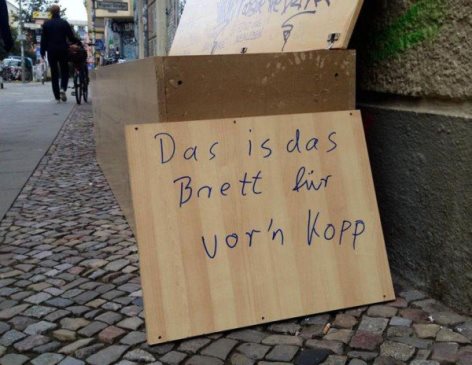 Das is das
Brett für
vor'n Kopp